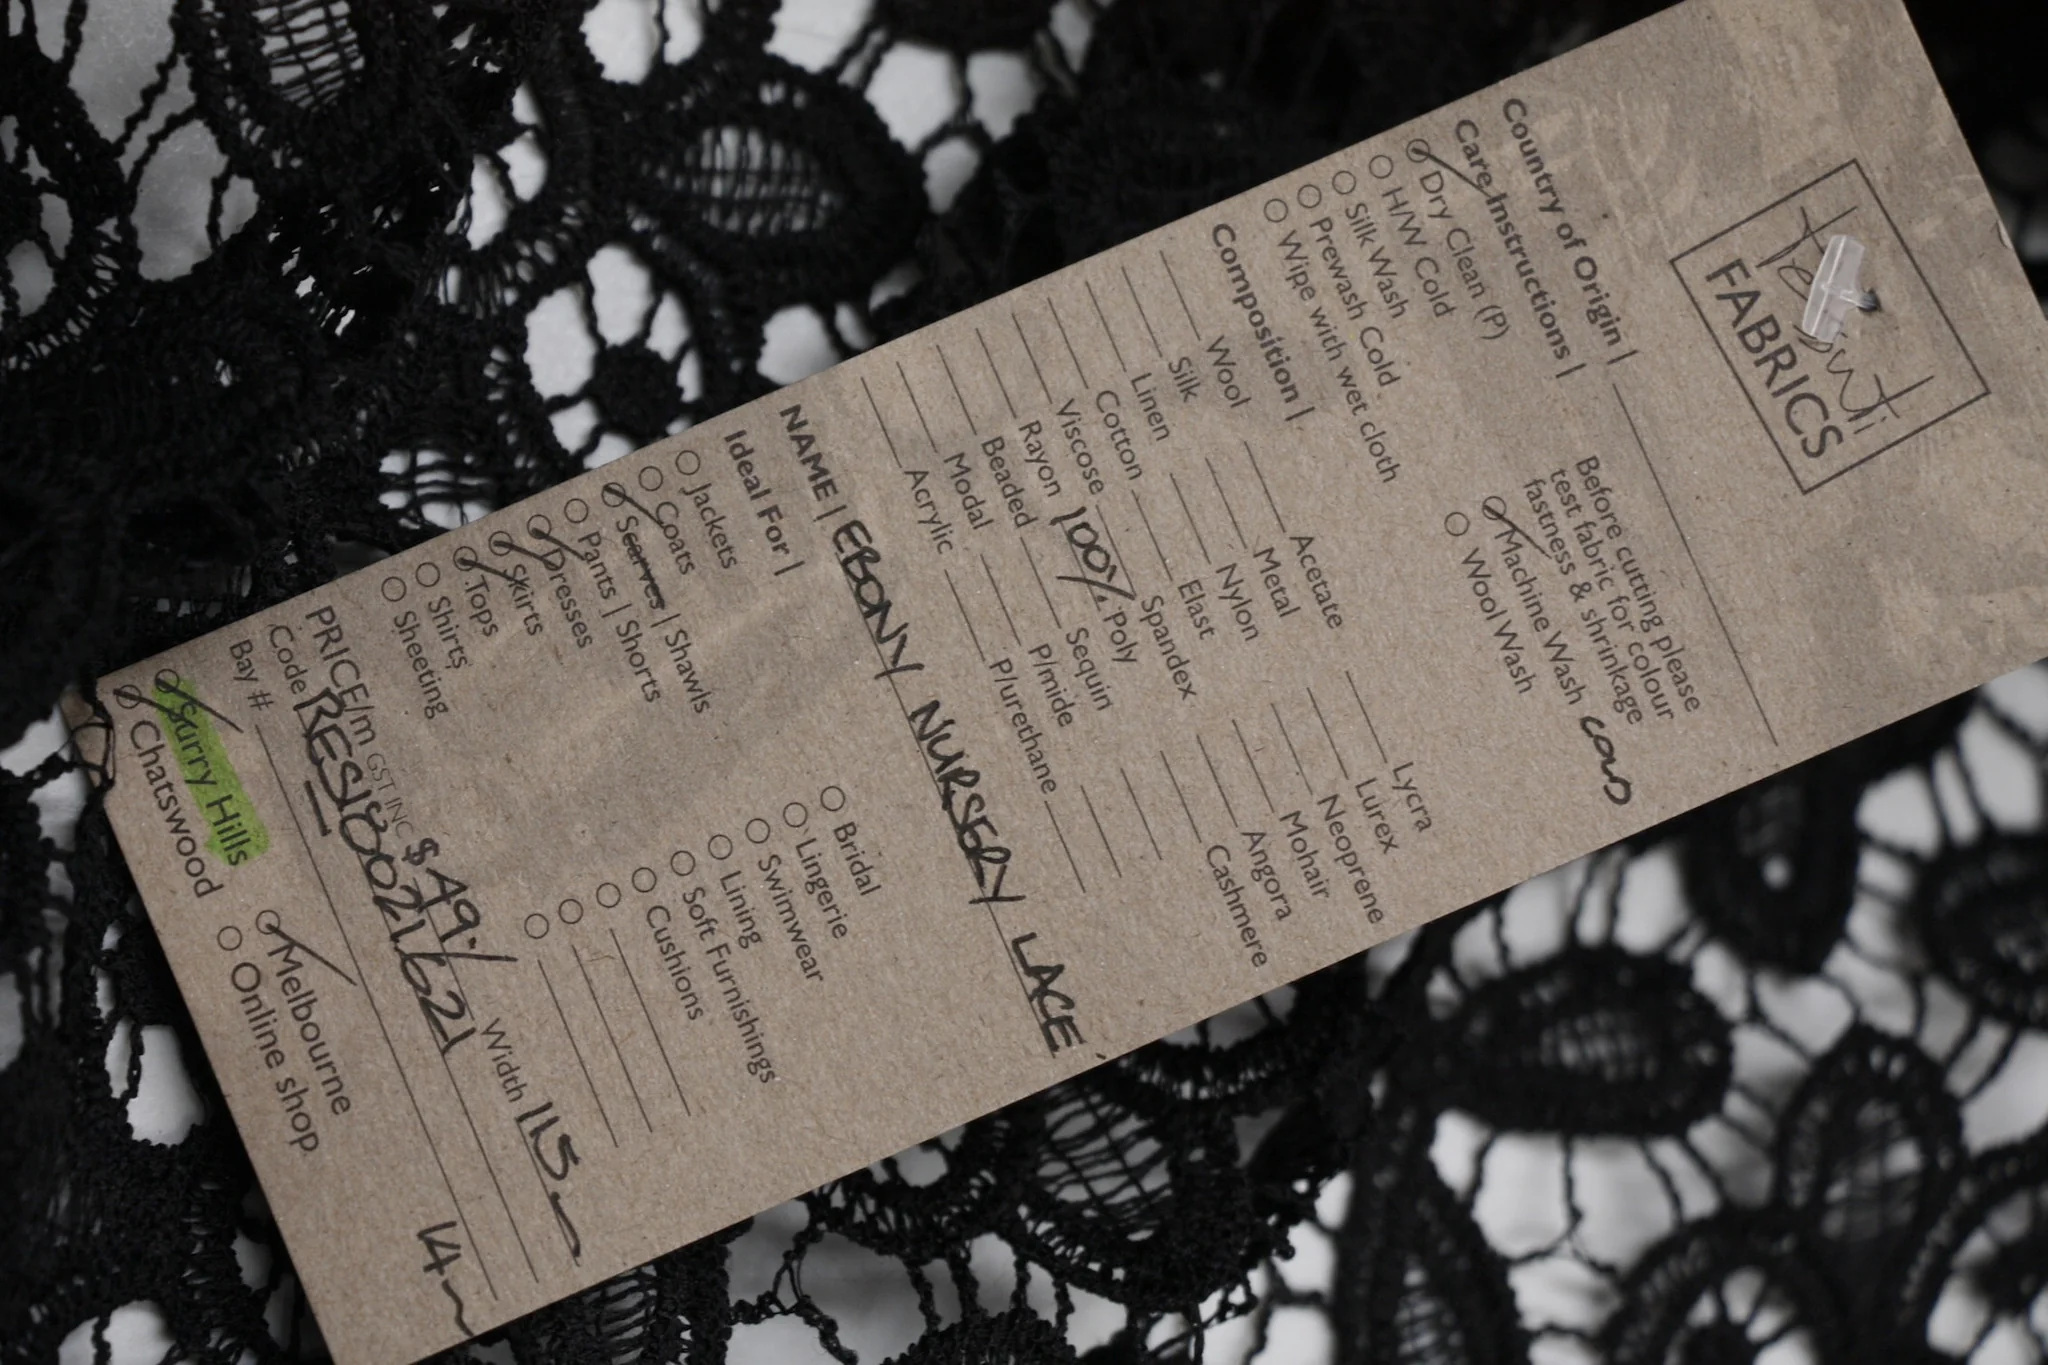 FABRICS
Country of Origin |
Before cutting please
test fabric for colour
fastness & shrinkage
Care Instructions |
Dry Clean (P)
Machine Wash COLD
H/W Cold
Wool Wash
Silk Wash
Prewash Cold
Wipe with wet cloth
Composition |
Wool Acetate Lycra
Silk Metal Lurex
Linen Nylon Neoprene
Cotton Elast Mohair
Viscose Spandex Angora
Rayon 100% Poly Cashmere
Beaded Sequin
Modal P/mide
Acrylic P/urethane
NAME | EBONY NURSERY LACE
Ideal For |
Jackets Bridal
Coats Lingerie
Scarves | Shawls Swimwear
Pants | Shorts Lining
Dresses Soft Furnishings
Skirts Cushions
Tops
Shirts
Sheeting
PRICE/m GST INC $49./ Width 115
Code
Bay #
14m
Surry Hills Melbourne
Chatswood Online shop